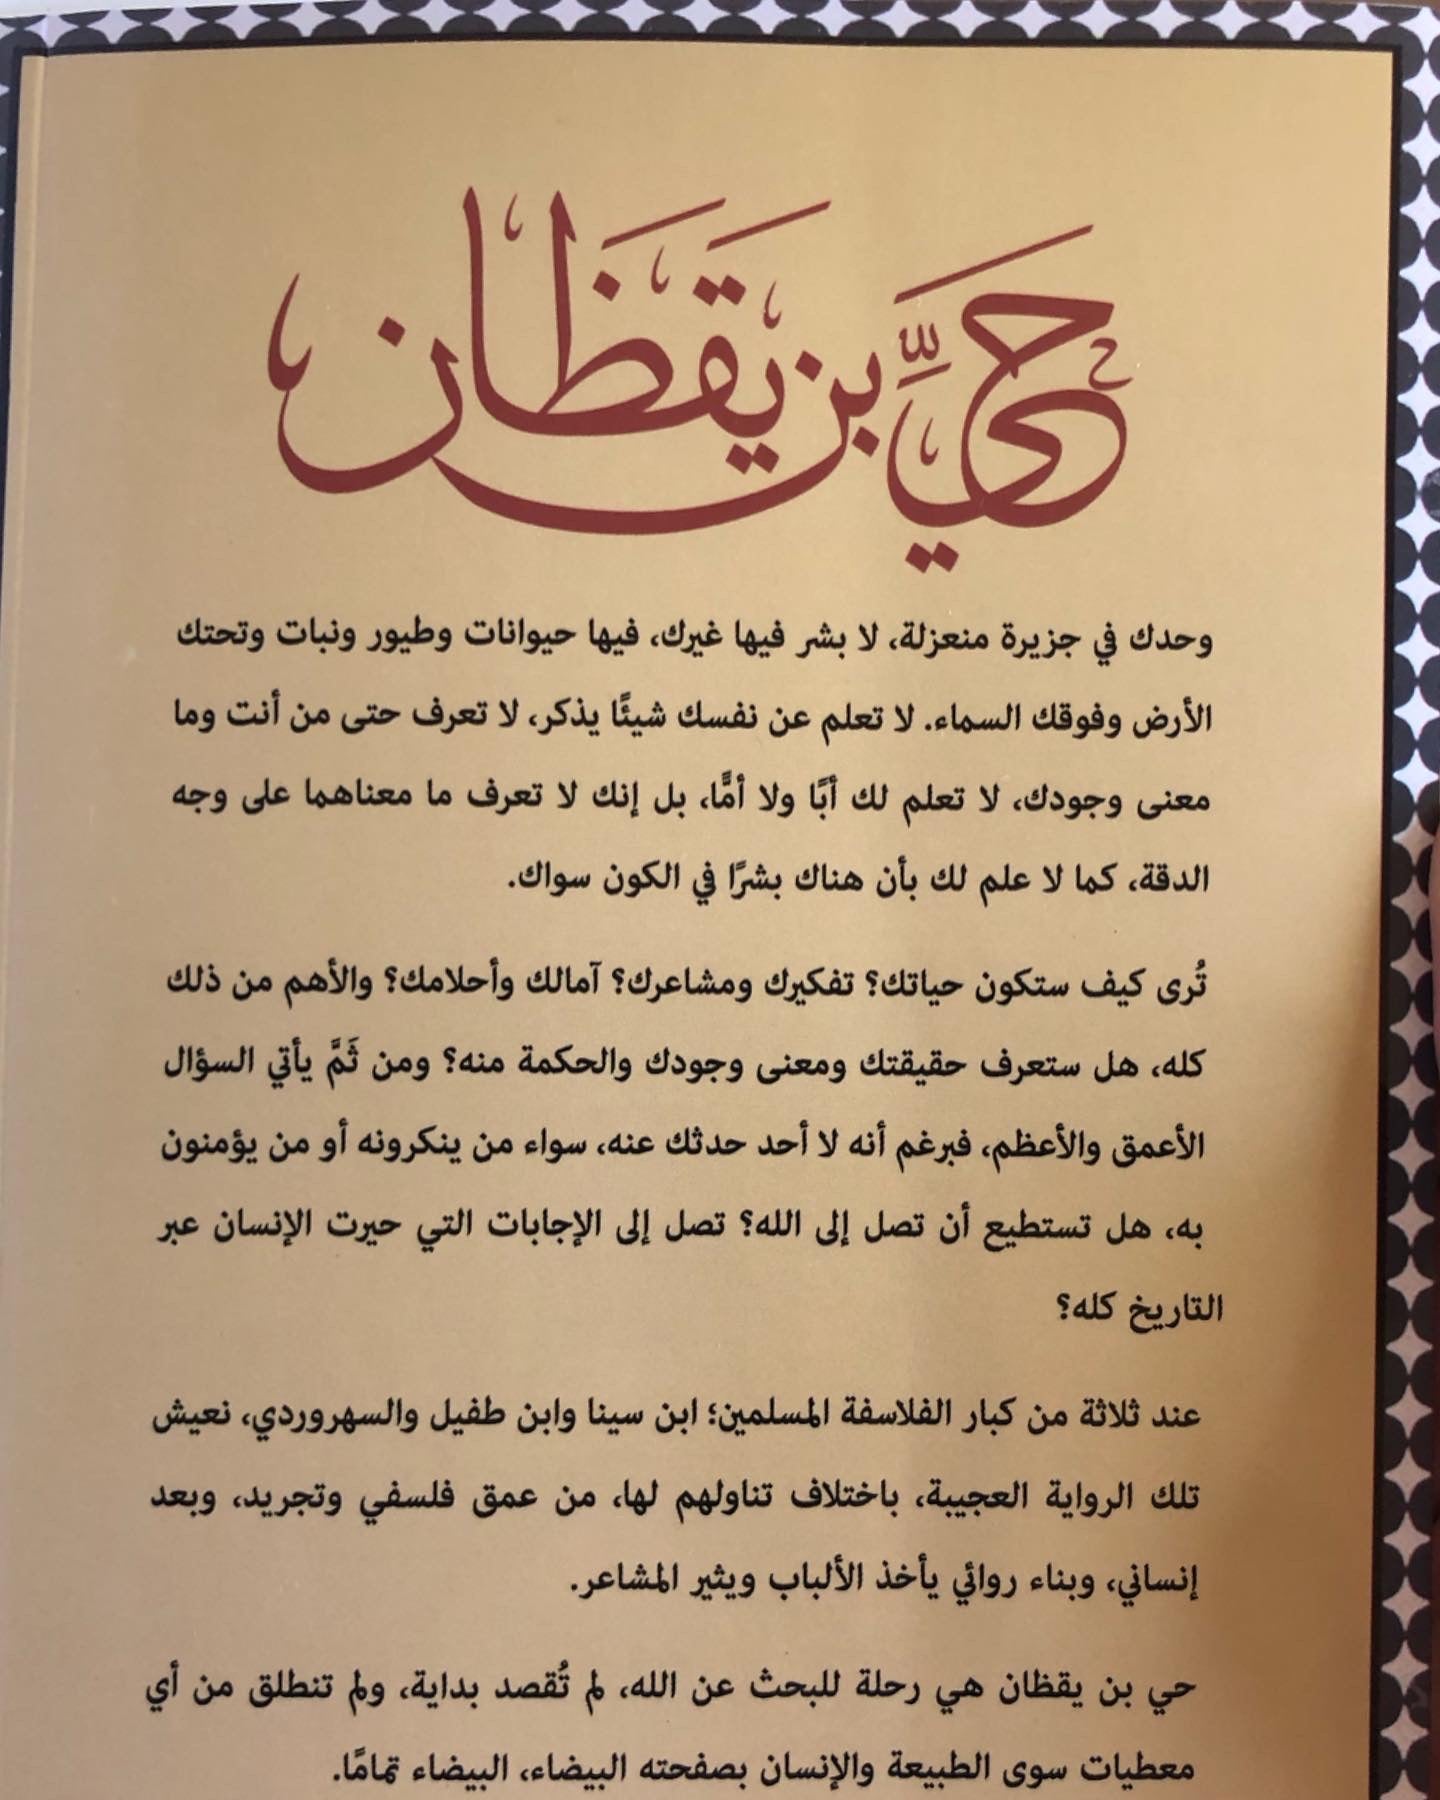 حي بن يقظان
وحدك في جزيرة منعزلة، لا بشر فيها غيرك، فيها حيوانات وطيور ونبات وتحتك
الأرض وفوقك السماء. لا تعلم عن نفسك شيئًا يذكر، لا تعرف حتى من أنت وما
معنى وجودك، لا تعلم لك أبًا ولا أمًّا، بل إنك لا تعرف ما معناهما على وجه
الدقة، كما لا علم لك بأن هناك بشرًا في الكون سواك.
تُرى كيف ستكون حياتك؟ تفكيرك ومشاعرك؟ آمالك وأحلامك؟ والأهم من ذلك
كله، هل ستعرف حقيقتك ومعنى وجودك والحكمة منه؟ ومن ثَمَّ يأتي السؤال
الأعمق والأعظم، فبرغم أنه لا أحد حدثك عنه، سواء من ينكرونه أو من يؤمنون
به، هل تستطيع أن تصل إلى الله؟ تصل إلى الإجابات التي حيرت الإنسان عبر
التاريخ كله؟
عند ثلاثة من كبار الفلاسفة المسلمين؛ ابن سينا وابن طفيل والسهروردي، نعيش
تلك الرواية العجيبة، باختلاف تناولهم لها، من عمق فلسفي وتجريد، وبعد
إنساني، وبناء روائي يأخذ الألباب ويثير المشاعر.
حي بن يقظان هي رحلة للبحث عن الله، لم تُقصد بداية، ولم تنطلق من أي
معطيات سوى الطبيعة والإنسان بصفحته البيضاء، البيضاء تمامًا.